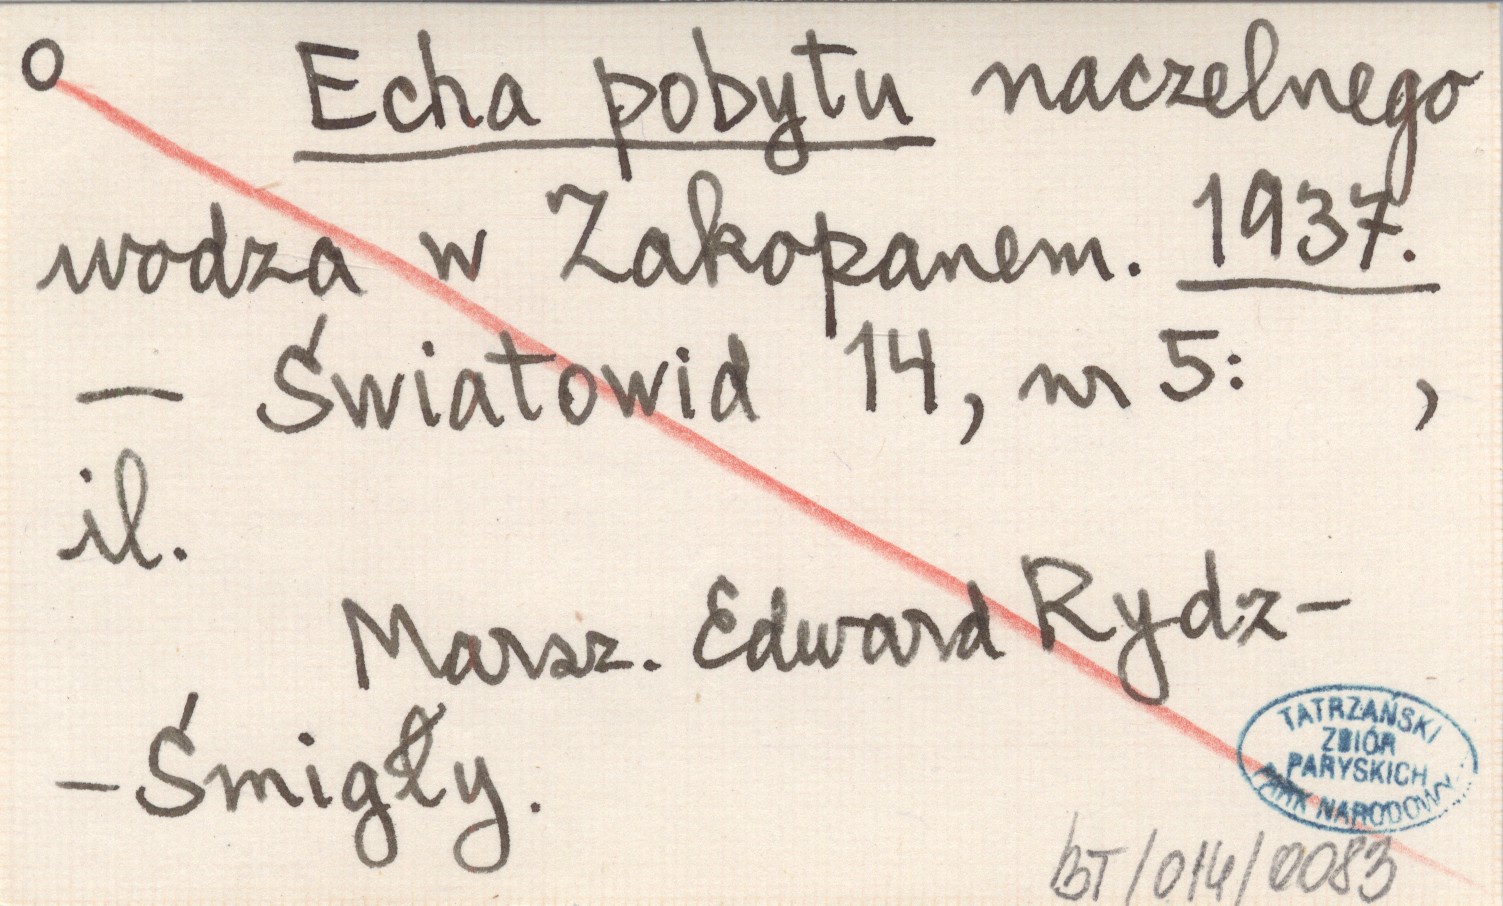 o Echa pobytu naczelnego
wodza w Zakopanem. 1937.
— Światowid 14, nr 5: ,
il.
Marsz. Edward Rydz-
-Śmigły.
TATRZAŃSKI
ZBIÓR
PARYSKICH
PARK NARODOWY
BT/014/0083